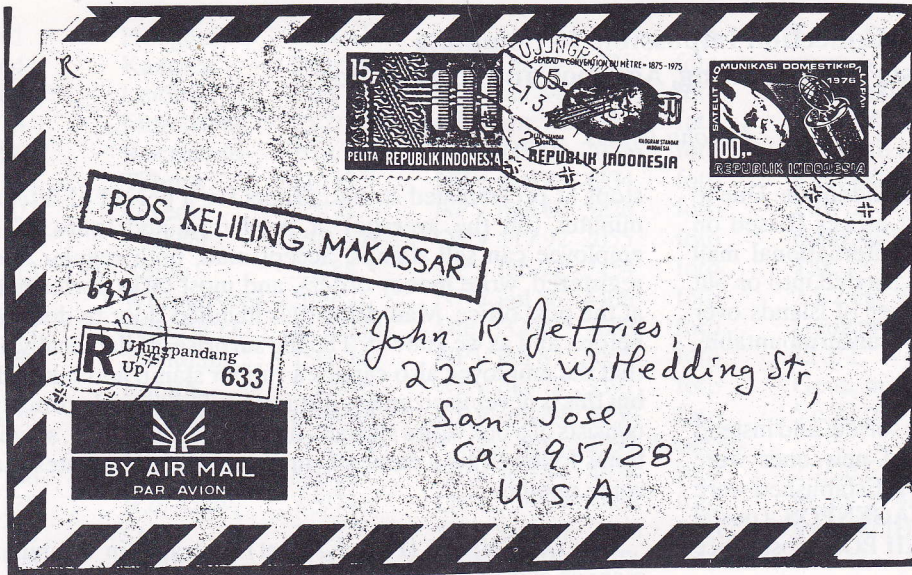 R
15,-
PELITA REPUBLIK INDONESIA
UJUNGP
SEABAD "CONVENTION DU MÈTRE" 1875-1975
65.-
-1.3
KILOGRAM STANDAR
INDONESIA
REPUBLIK INDONESIA
SATELIT KOMUNIKASI DOMESTIK "PALAPA"
1976
100,-
REPUBLIK INDONESIA
POS KELILING MAKASSAR
R Ujungpandang
Up
633
BY AIR MAIL
PAR AVION
John R. Jeffries,
2252 W. Hedding Str,
San Jose,
Ca. 95128
U.S.A